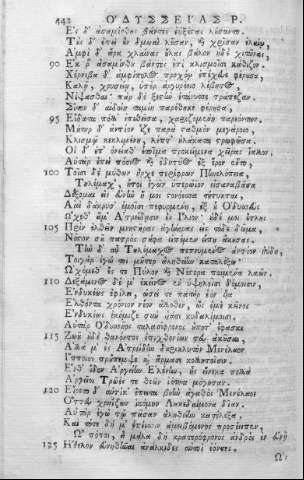 442 ὈΔΥΣΣΕΙΑΣ Ρ.
Ἐς δ' ἀσαμίνθους βάντες ἐυξέστας λούσαντο.
Τοὺς δ' ἐπεὶ οὖν δμωαὶ λοῦσαν, καὶ χρῖσαν ἐλαίῳ,
Ἀμφὶ δ' ἄρα χλαίνας οὔλας βάλον ἠδὲ χιτῶνας,
90 Ἔκ ῥ' ἀσαμίνθων βάντες ἐπὶ κλισμοῖσι κάθιζον.
Χέρνιβα δ' ἀμφίπολος προχόῳ ἐπέχευε φέρουσα,
Καλῇ, χρυσείῃ, ὑπὲρ ἀργυρέοιο λέβητος,
Νίψασθαι· παρὰ δὲ ξεστὴν ἐτάνυσσε τράπεζαν
Σῖτον δ' αἰδοίη ταμίη παρέθηκε φέρουσα,
95 Εἴδατα πόλλ' ἐπιθεῖσα, χαριζομένη παρεόντων.
Μήτηρ δ' ἀντίον ἷζε παρὰ σταθμὸν μεγάροιο,
Κλισμῷ κεκλιμένη, λέπτ' ἠλάκατα στρωφῶσα.
Οἱ δ' ἐπ' ὀνείαθ' ἑτοῖμα προκείμενα χεῖρας ἴαλλον.
Αὐτὰρ ἐπεὶ πόσιος καὶ ἐδητύος ἐξ ἔρον ἕντο,
100 Τοῖσι δὲ μύθων ἦρχε περίφρων Πηνελόπεια,
Τηλέμαχ', ἤτοι ἐγὼν ὑπερώιον εἰσαναβᾶσα
Λέξομαι εἰς εὐνὴν ἥ μοι στονόεσσα τέτυκται,
Αἰεὶ δάκρυσ' ἐμοῖσι πεφυρμένη, ἐξ οὗ Ὀδυσσεὺς
Ὤχεθ' ἅμ' Ἀτρείδῃσιν ἐς Ἴλιον· οὐδέ μοι ἔτλης
105 Πρὶν ἐλθεῖν μνηστῆρας ἀγήνορας ἐς τόδε δῶμα,
Νόστον σοῦ πατρὸς σάφα εἰπέμεν εἴπου ἄκουσας.
Τὴν δ' αὖ Τηλέμαχος πεπνυμένος ἀντίον ηὔδα,
Τοιγὰρ ἐγώ τοι μῆτερ ἀληθείην καταλέξω·
Ὠχόμεθ' ἔς τε Πύλον καὶ Νέστορα ποιμένα λαῶν.
110 Δεξάμενος δέ μ' ἐκεῖνος ἐν ὑψηλοῖσι δόμοισιν,
Ἐνδυκέως ἐφίλει, ὡσεί τε πατὴρ ἑὸν υἷα
Ἐλθόντα χρόνιον νέον ἄλλοθεν, ὣς ἐμὲ κεῖνος
Ἐνδυκέως ἐκόμιζε σὺν υἱάσι κυδαλίμοισι.
Αὐτὰρ Ὀδυσσῆος ταλασίφρονος οὔποτ' ἔφασκε
115 Ζωοῦ οὐδὲ θανόντος ἐπιχθονίων του ἀκοῦσαι,
Ἀλλά μ' ἐς Ἀτρείδην δουρικλειτὸν Μενέλαον
Ἵπποισι προὔπεμψε καὶ ἅρμασι κολλητοῖσιν.
Ἔνθ' ἴδον Ἀργείην Ἑλένην, ἧς εἵνεκα πολλὰ
Ἀργεῖοι Τρῶές τε θεῶν ἰότητι μόγησαν.
120 Εἴρετο δ' αὐτίκ' ἔπειτα βοὴν ἀγαθὸς Μενέλαος
Ὅττευ χρηΐζων ἱκόμην Λακεδαίμονα δῖαν.
Αὐτὰρ ἐγὼ τῷ πᾶσαν ἀληθείην κατέλεξα.
Καὶ τότε δή μ' ἐπέεσσιν ἀμειβόμενος προσέειπεν,
Ὢ πόποι, ἦ μάλα δὴ κρατερόφρονος ἀνδρὸς ἐν εὐνῇ
125 Ἤθελον εὐνηθῆναι ἀνάλκιδες αὐτοὶ ἐόντες.
Ὡς